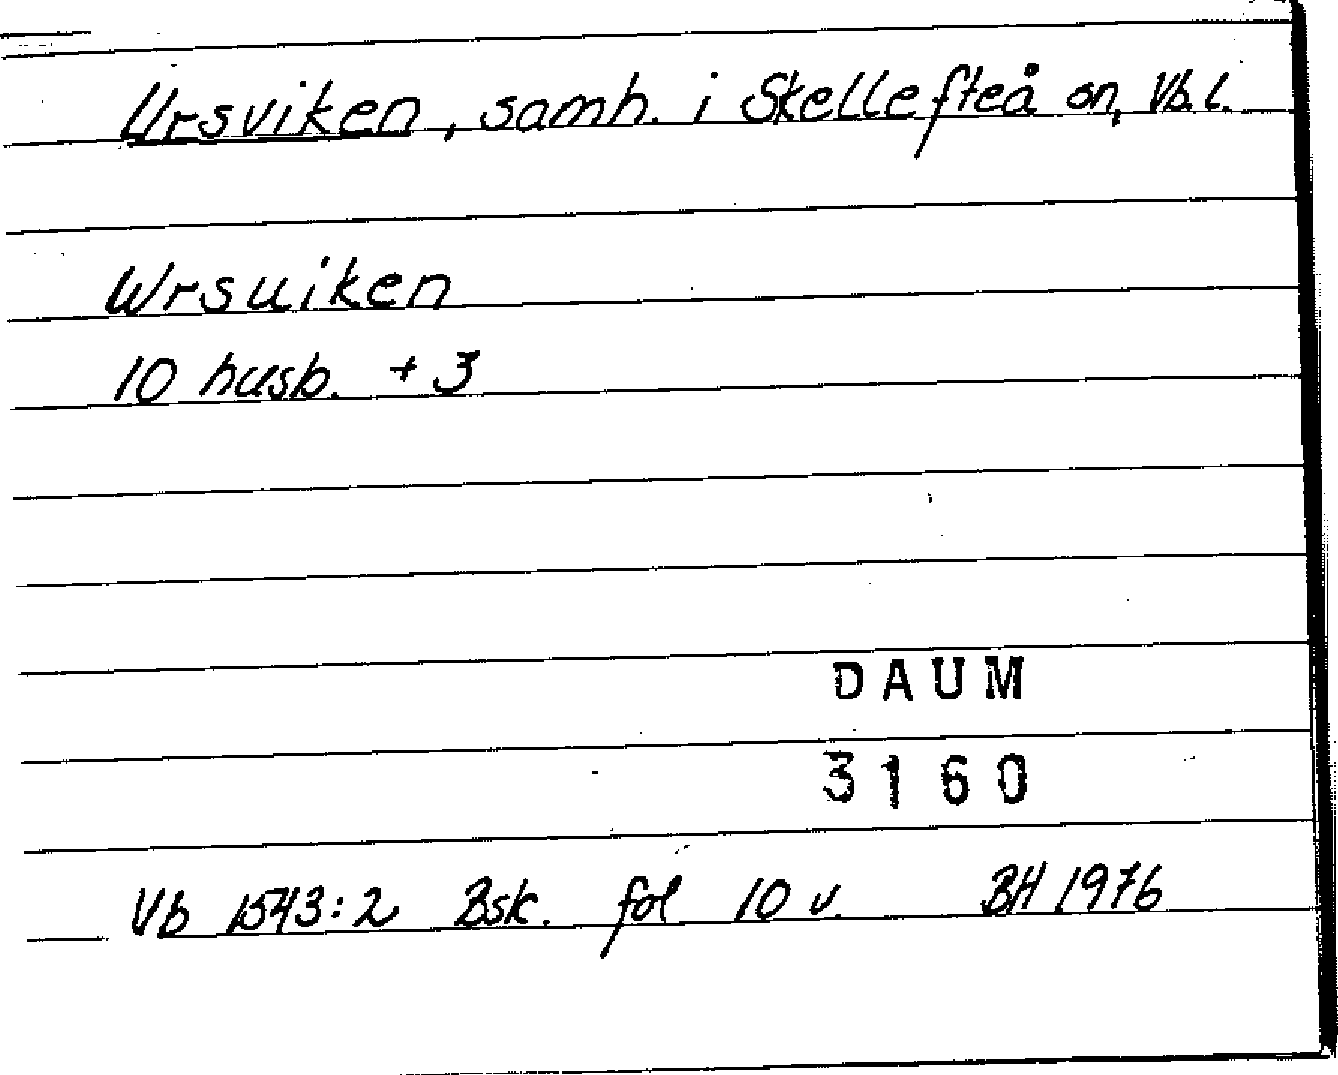 Ursviken, samh. i Skellefteå sn, Vb.l.
Wrsuiken
10 husb. + 3
DAUM
3160
Vb 1543:2 Bsk. fol 10 v. BH 1976